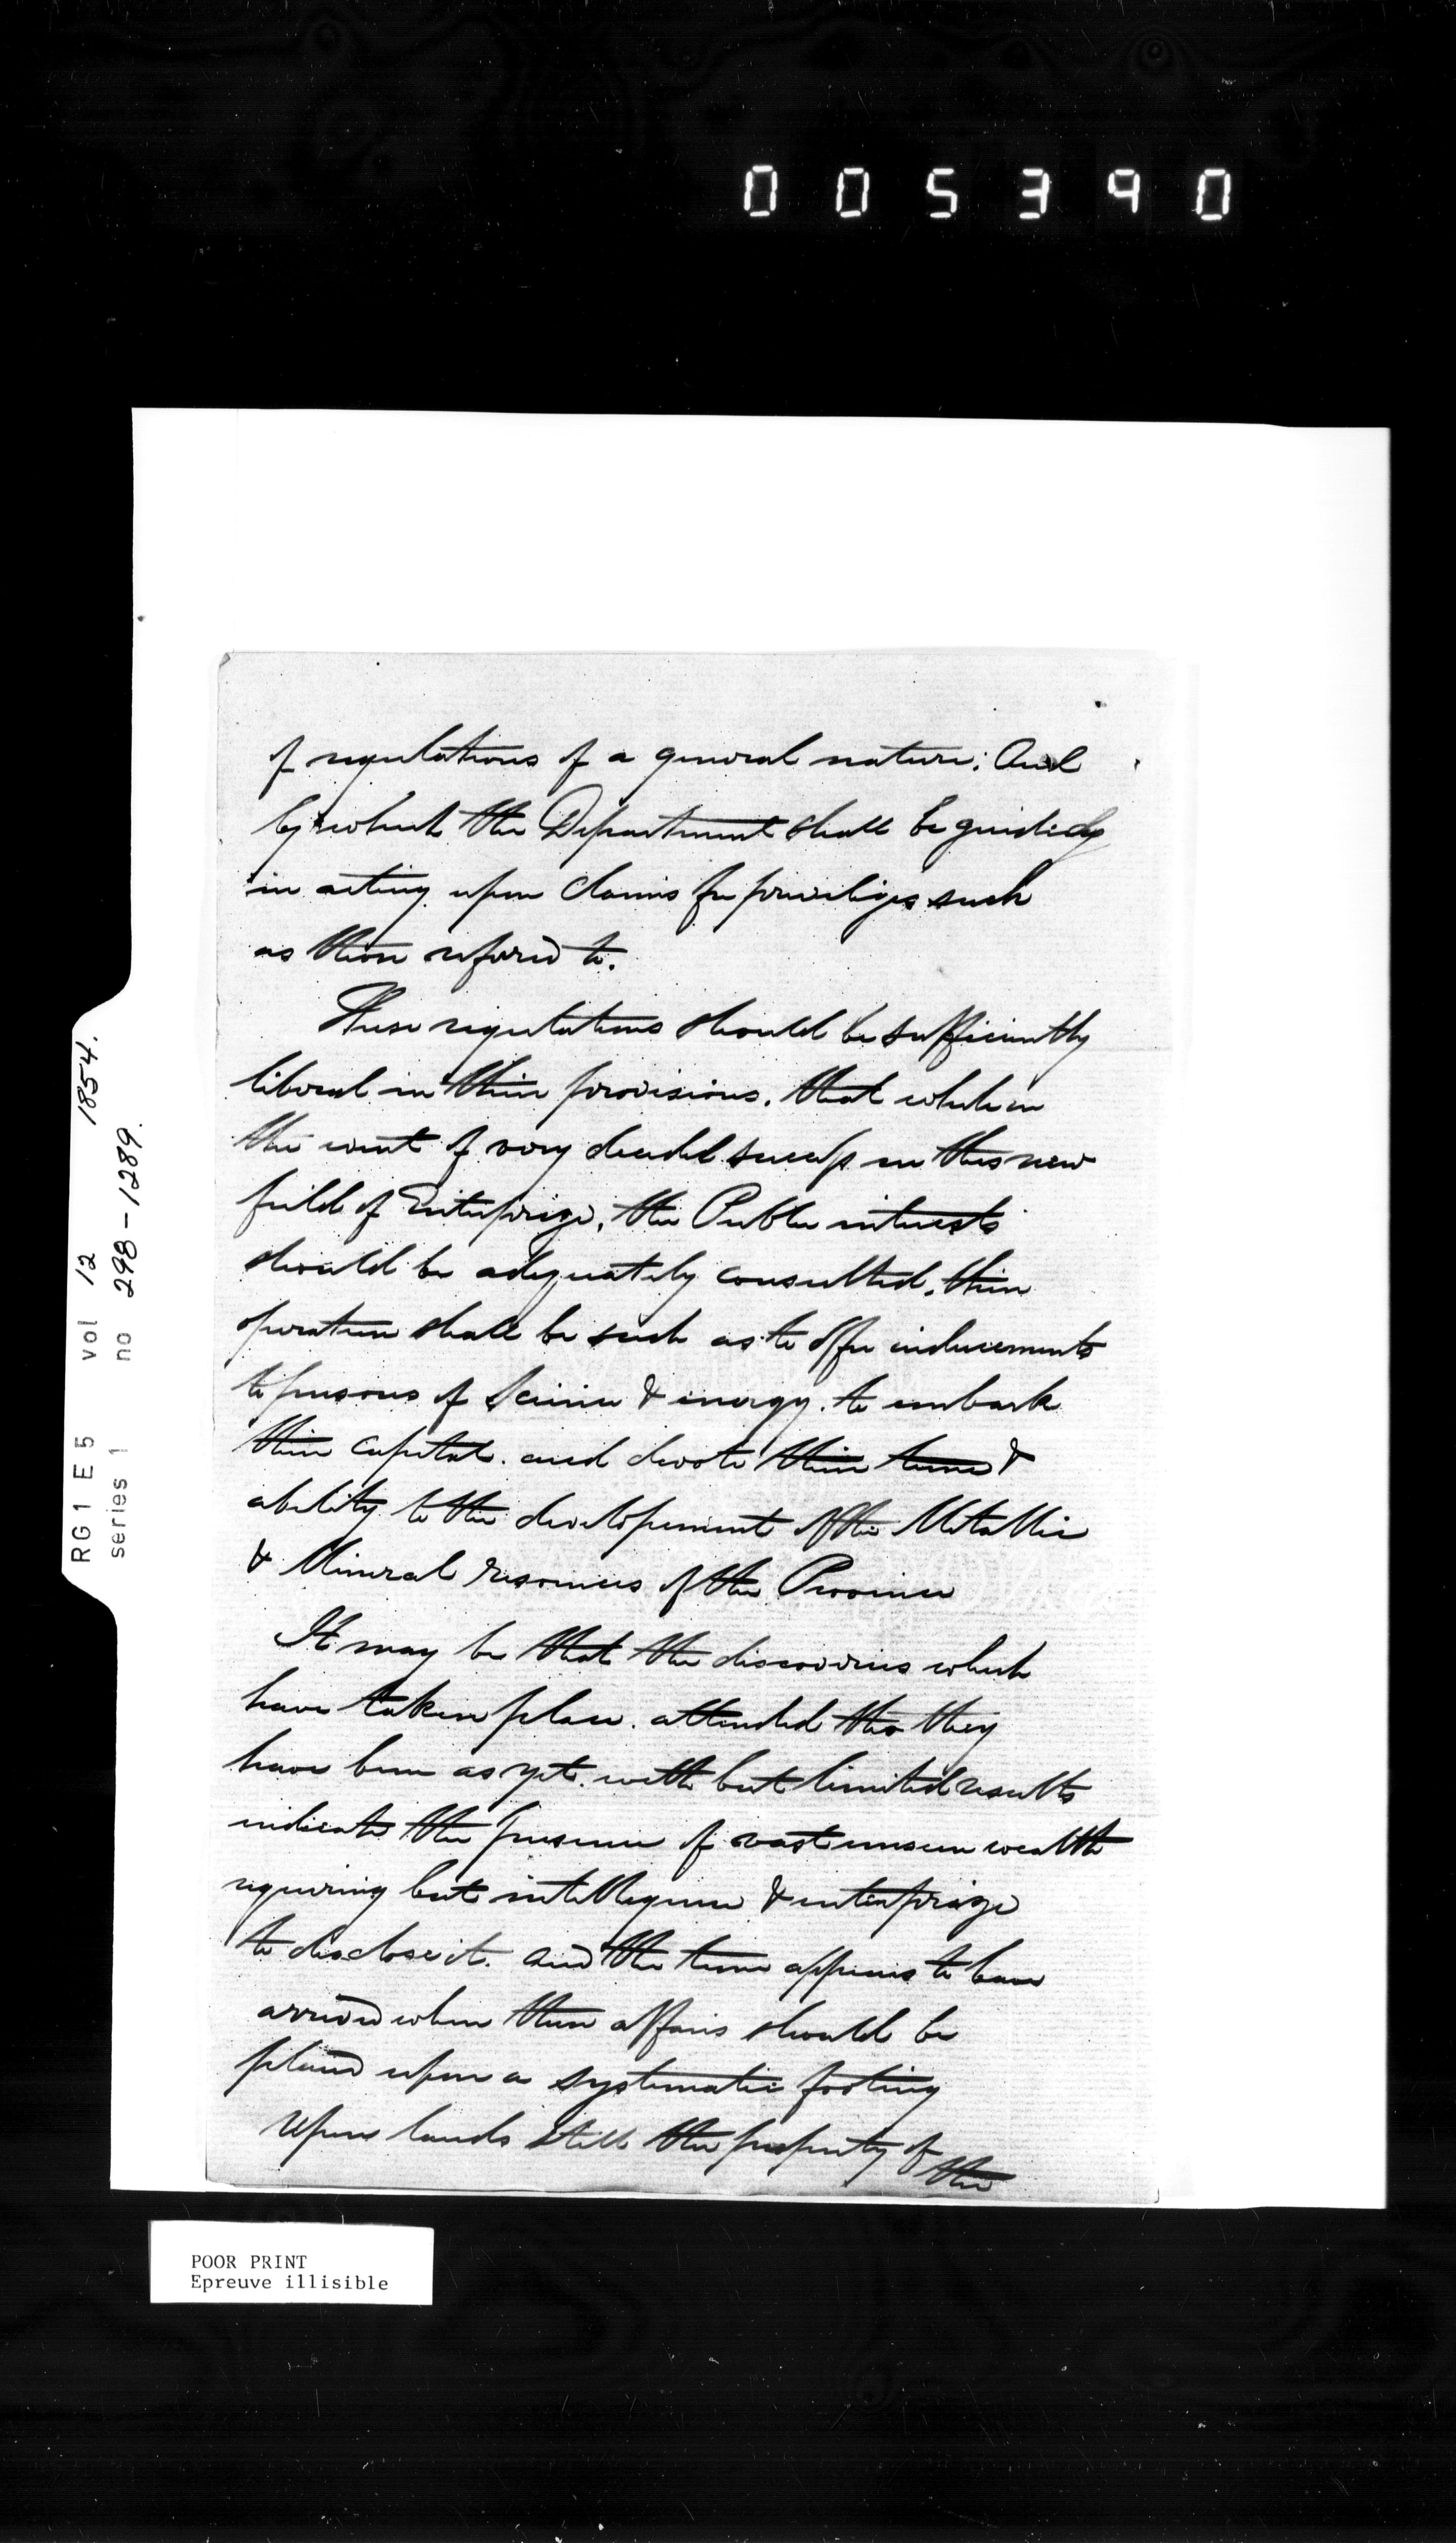 005390
RG1 E5 vol 12 1854.
series 1 no 298-1289.
of regulations of a general nature; And
by which the Department shall be guided
in acting upon Claims for priviliges such
as those refered to.
These regulations should be sufficiently
liberal in their provisions, that while in
the event of very decided success in this new
field of Enterprize, the Public interests
should be adequately consulted, their
operation shall be such as to offer inducements
to persons of Science & energy. to embark
their capital. and devote their time &
ability to the developement of the Metallic
& Mineral resources of the Province
It may be that the discoveries which
have taken place. attended tho they
have been as yet. with but limited results
indicate the presence of vast unseen wealth
requiring but intelligence & enterprize
to disclose it. and the time appears to have
arrived when these affairs should be
placed upon a systematic footing
Upon lands still the property of
the
POOR PRINT
Epreuve illisible